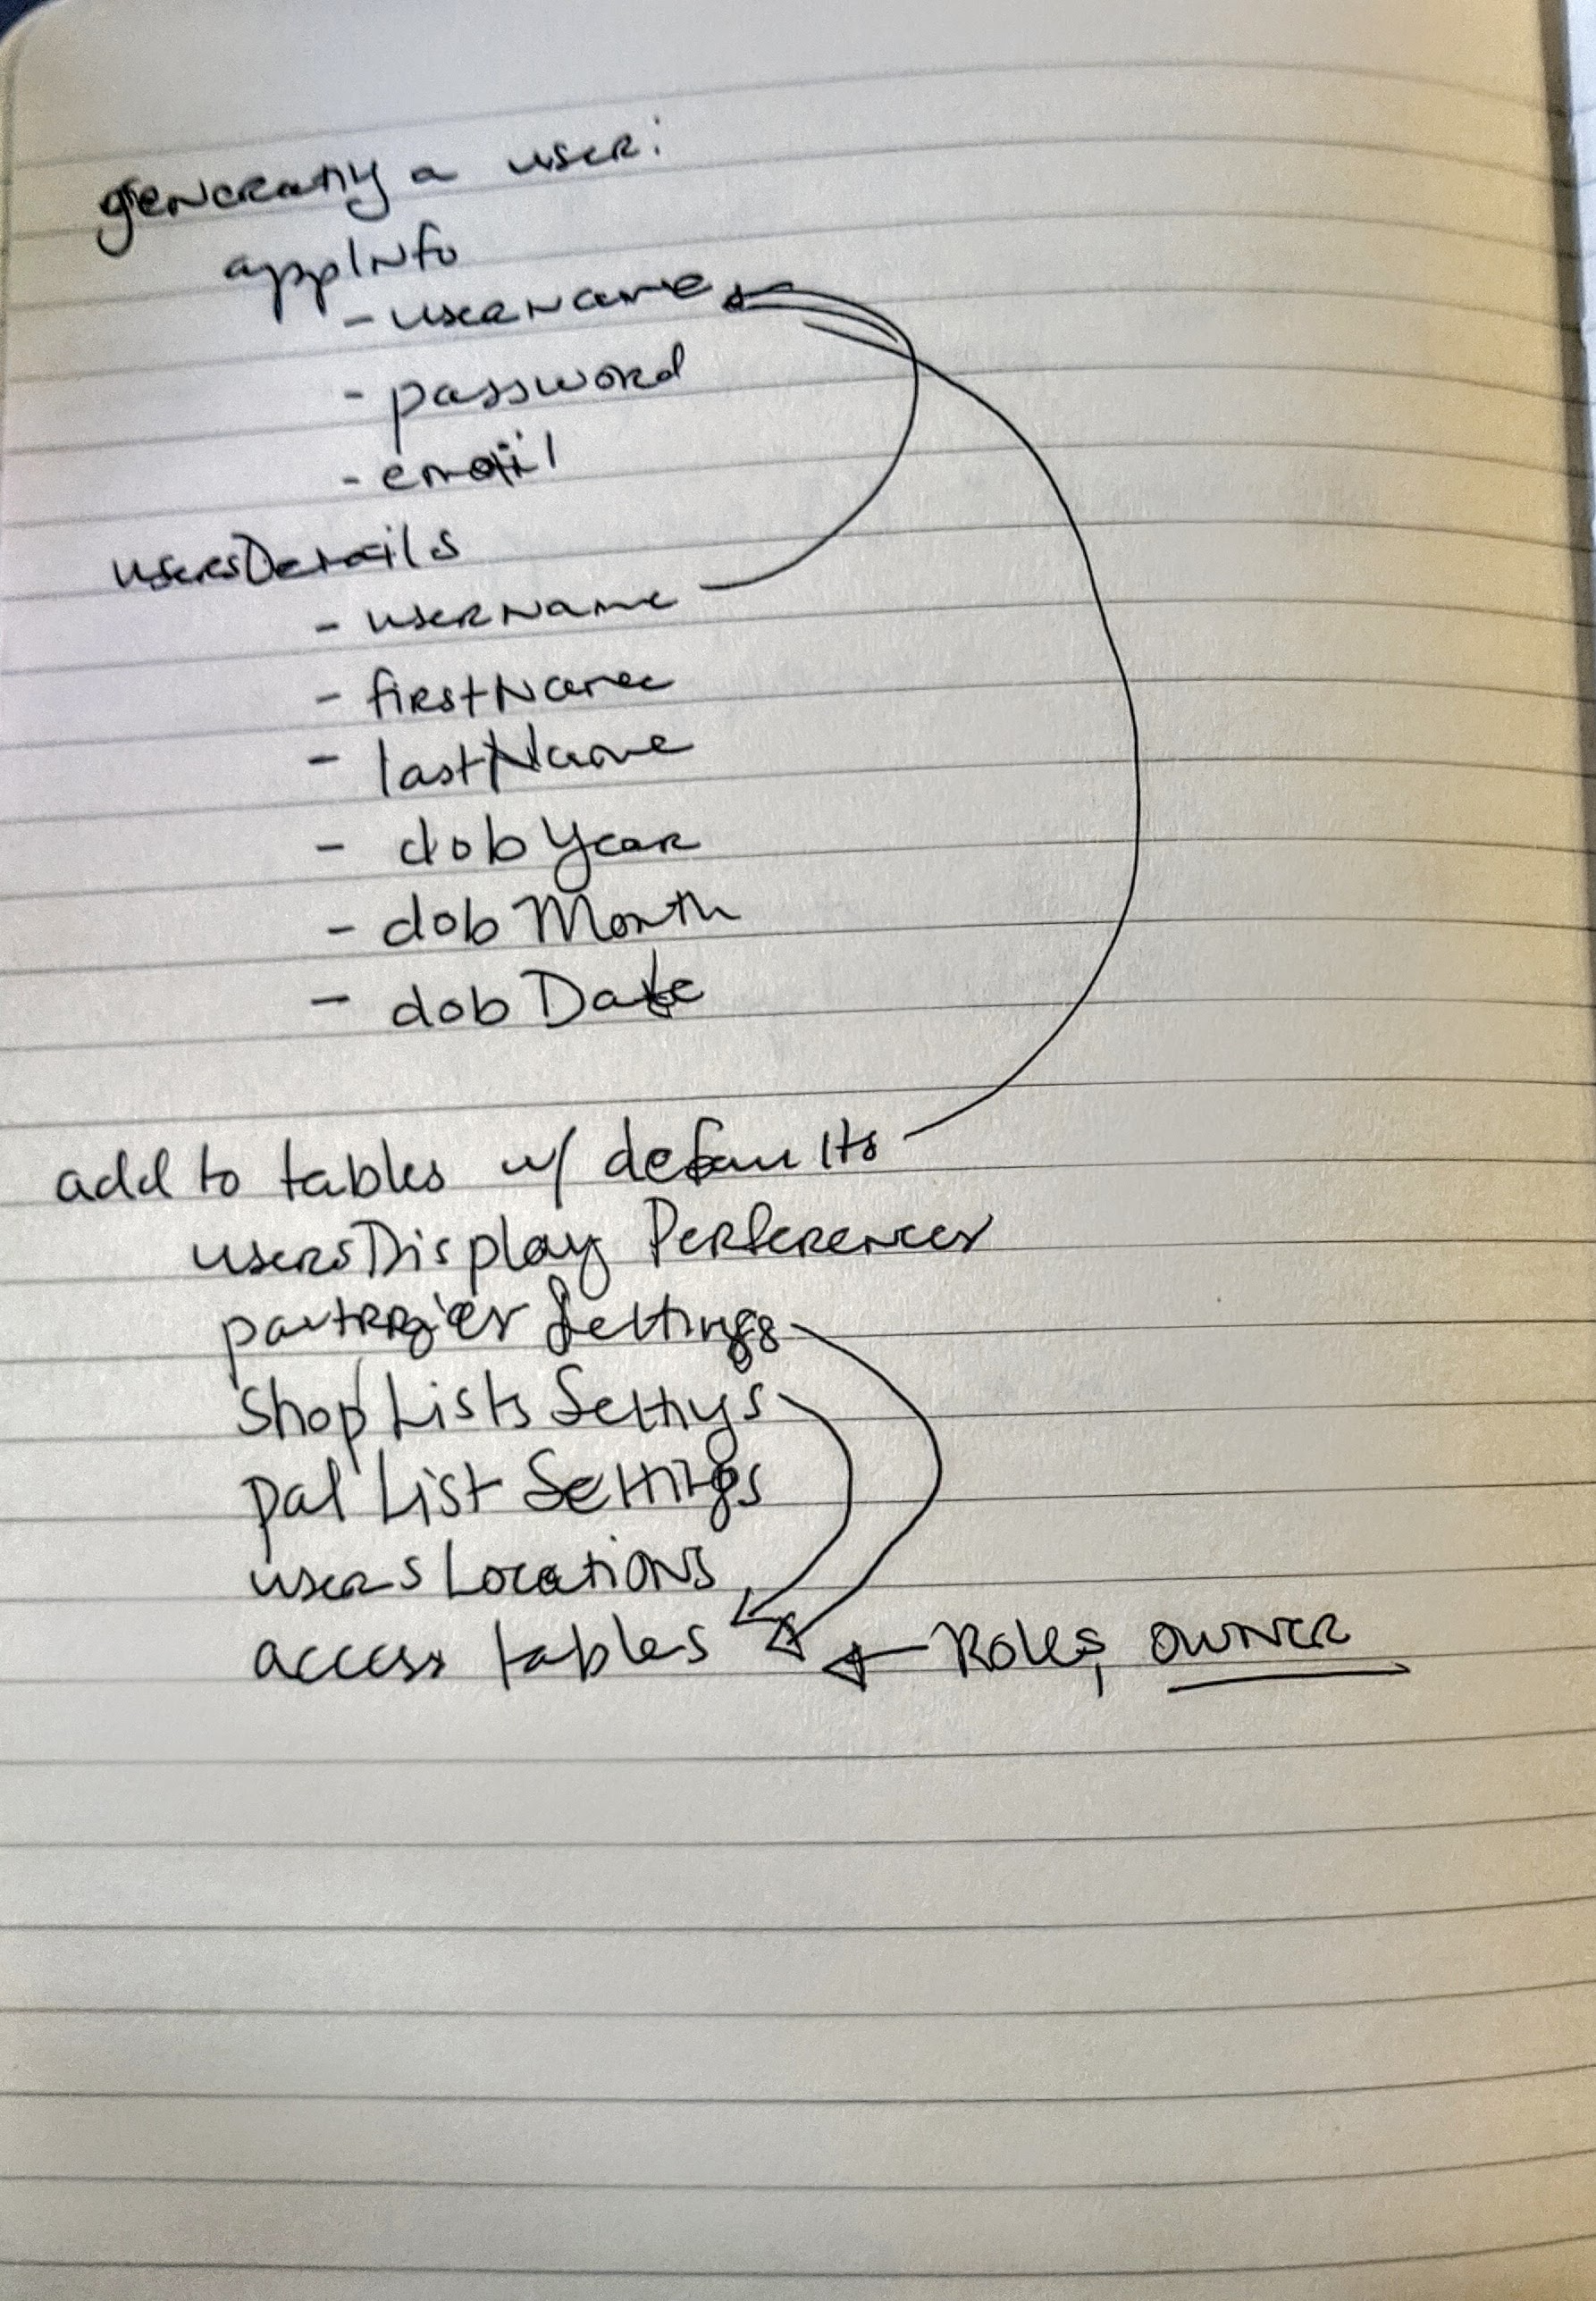 generating a user:
appInfo
- userName
- password
- email
usersDetails
- userName
- firstName
- lastName
- dobYear
- dobMonth
- dobDate
add to tables w/ defaults
usersDisplay Perferences
Settings
ShopLists Settings
pal List Settings
usersLocations
access tables ← Roles, owner